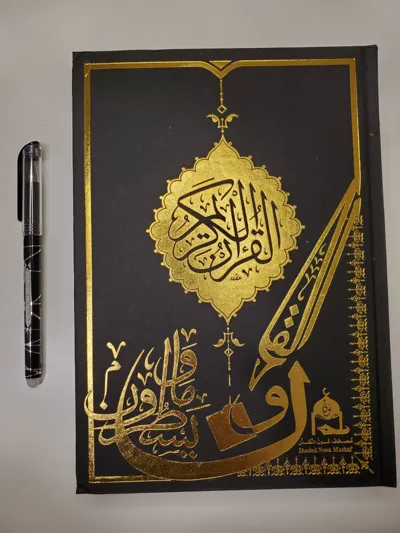 القرآن الكريم
ن والقلم وما يسطرون
Shaded Noon Mushaf